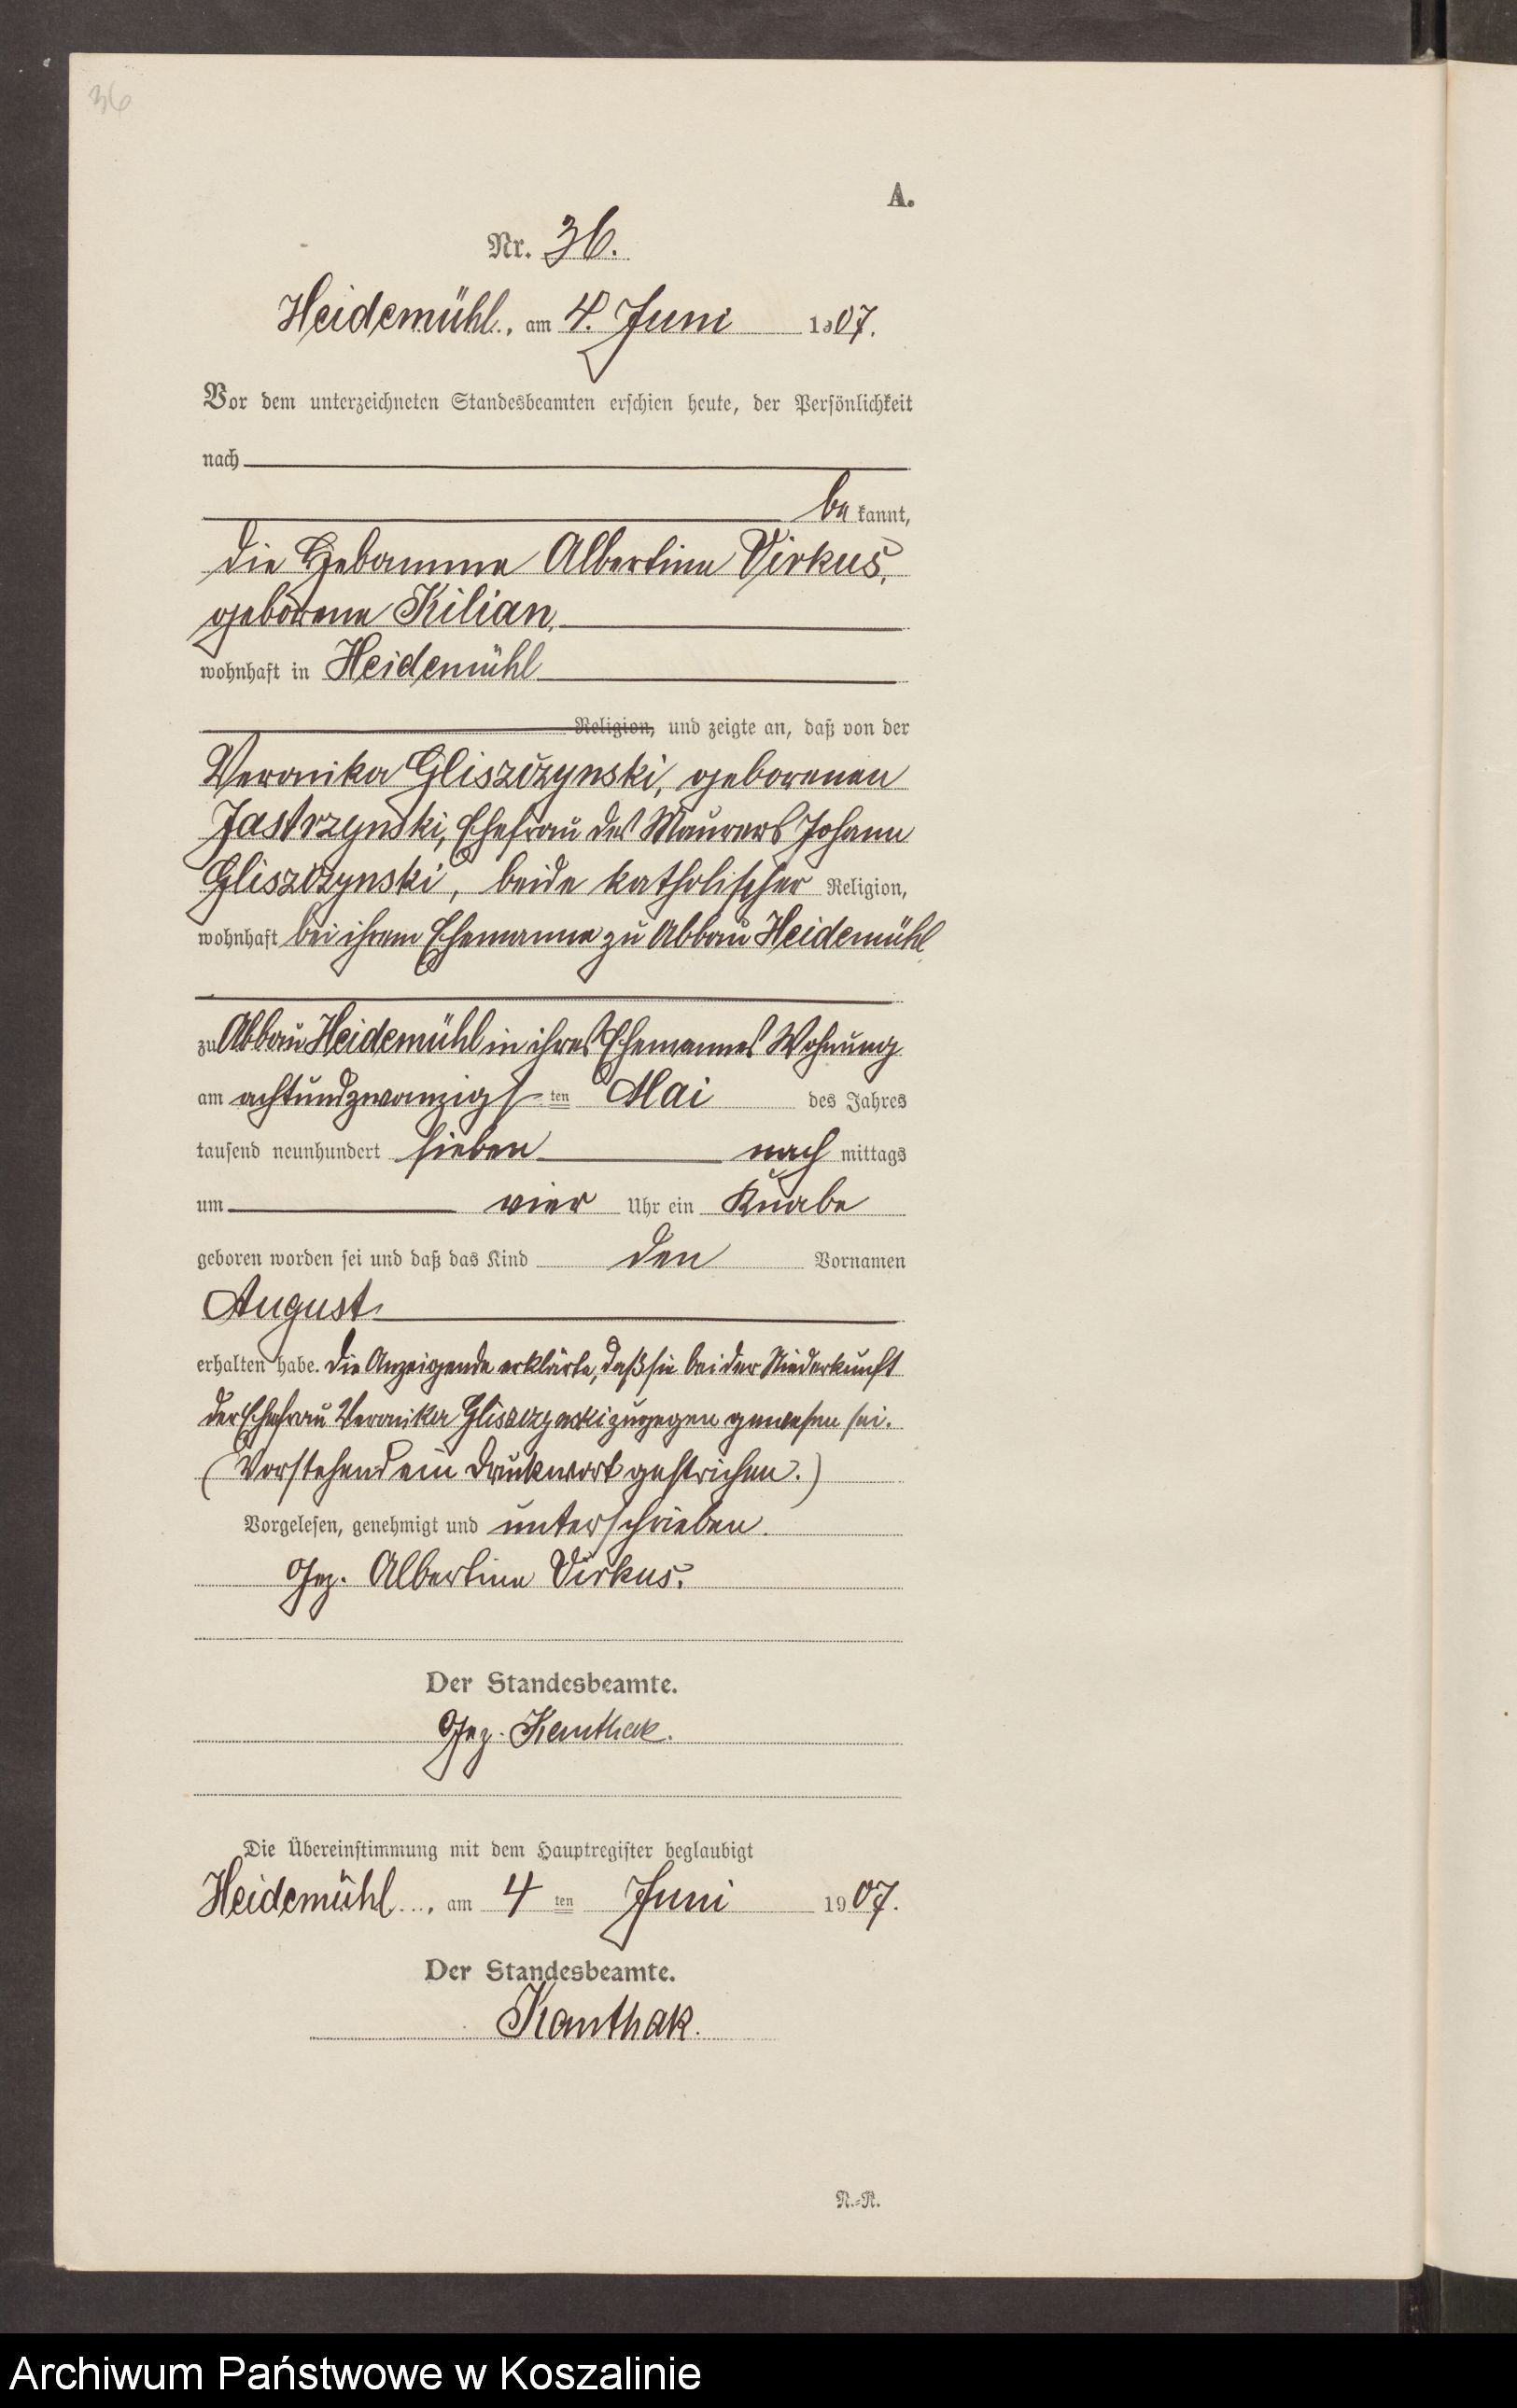 36
A.
Nr. 36.
Heidemühl, am 4. Juni 1907.
Vor dem unterzeichneten Standesbeamten erschien heute, der Persönlichkeit
nach
be kannt,
die Hebamme Albertine Virkus,
geborene Kilian,
wohnhaft in Heidemühl
Religion, und zeigte an, daß von der
Veronika Gliszczynski, geborenen
Jastrzynski, Ehefrau des Maurers Johann
Gliszczynski, beide katholischer Religion,
wohnhaft bei ihrem Ehemanne zu Abbau Heidemühl
zu Abbau Heidemühl in ihres Ehemannes Wohnung
am achtundzwanzigs ten Mai des Jahres
tausend neunhundert sieben nach mittags
um vier Uhr ein Knabe
geboren worden sei und daß das Kind den Vornamen
August
erhalten habe. Die Anzeigende erklärte, daß sie bei der Niederkunft
der Ehefrau Veronika Gliszczynski zugegen gewesen sei.
(Vorstehend ein Druckwort gestrichen.)
Vorgelesen, genehmigt und unterschrieben.
Gez. Albertine Virkus.
Der Standesbeamte.
Gez. Kanthak.
Die Übereinstimmung mit dem Hauptregister beglaubigt
Heidemühl, am 4 ten Juni 1907.
Der Standesbeamte.
Kanthak.
N.-R.
Archiwum Państwowe w Koszalinie